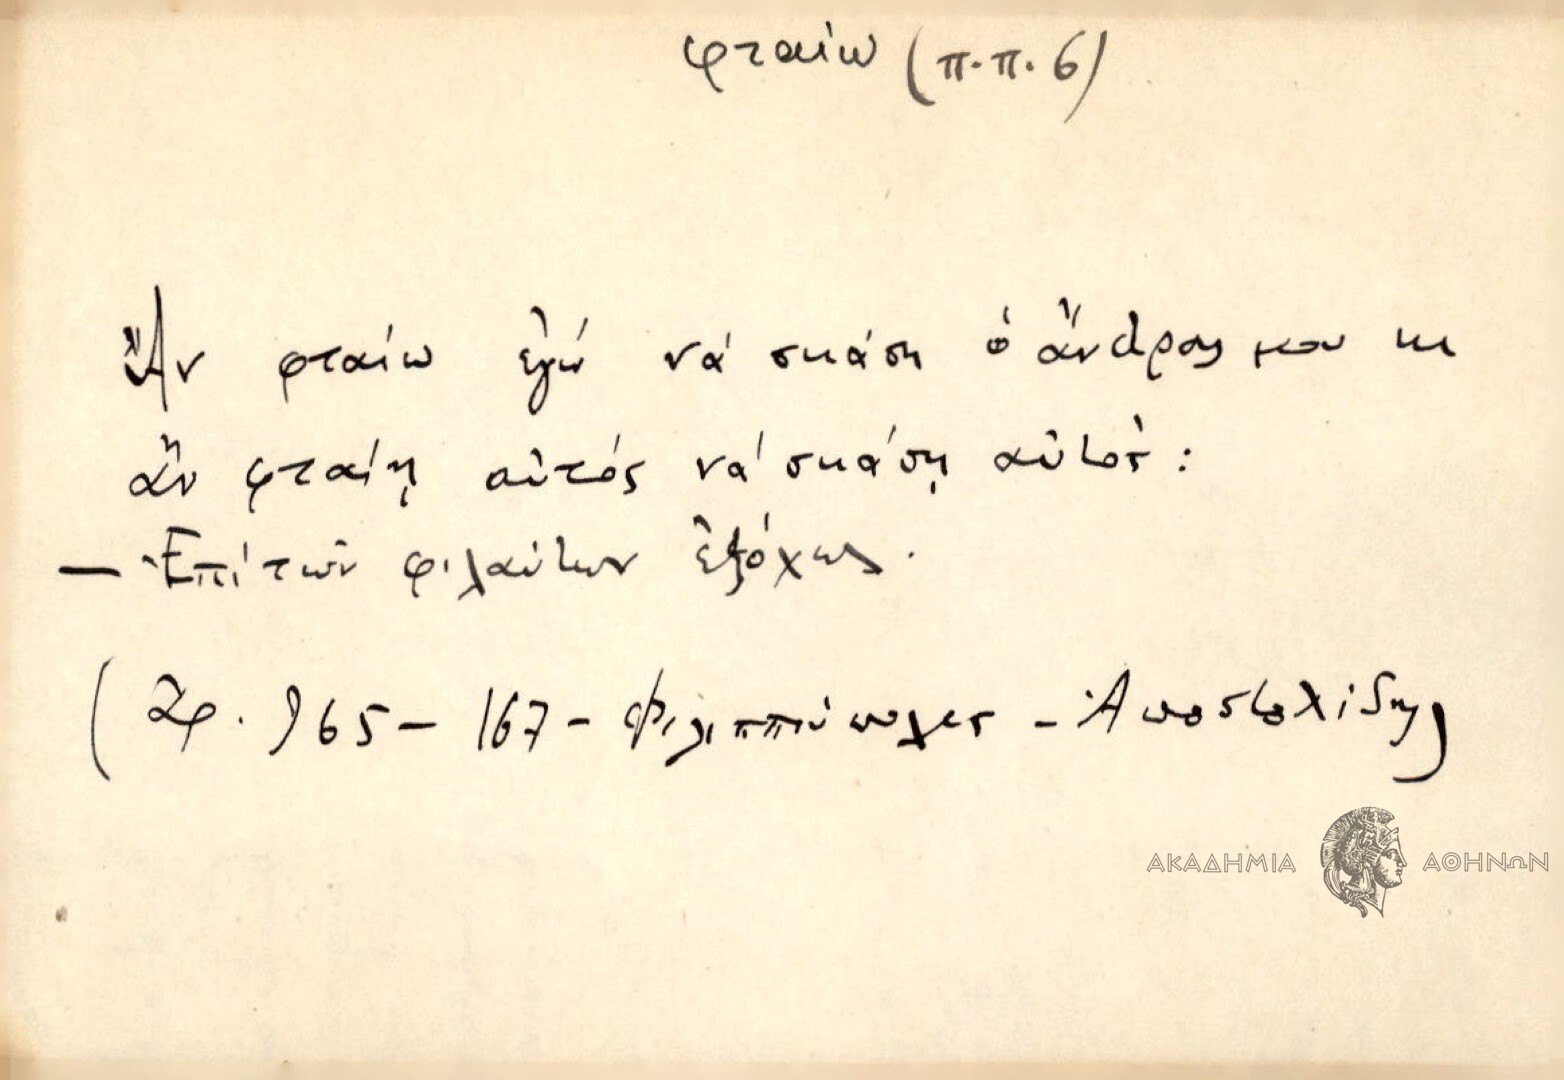 φταίω (π.π. 6)
Ἂν φταίω ἐγώ νά σκάση ὁ ἄνδρας μου κι
ἂν φταίῃ αὐτός νά σκάσῃ αὐτός :
— Ἐπί τῶν φιλαύτων ἐξόχως .
( Ἀρ. 965 – 167 – Φιλιππούπολις – Ἀποστολίδης)
ΑΚΑΔΗΜΙΑ ΑΘΗΝΩΝ